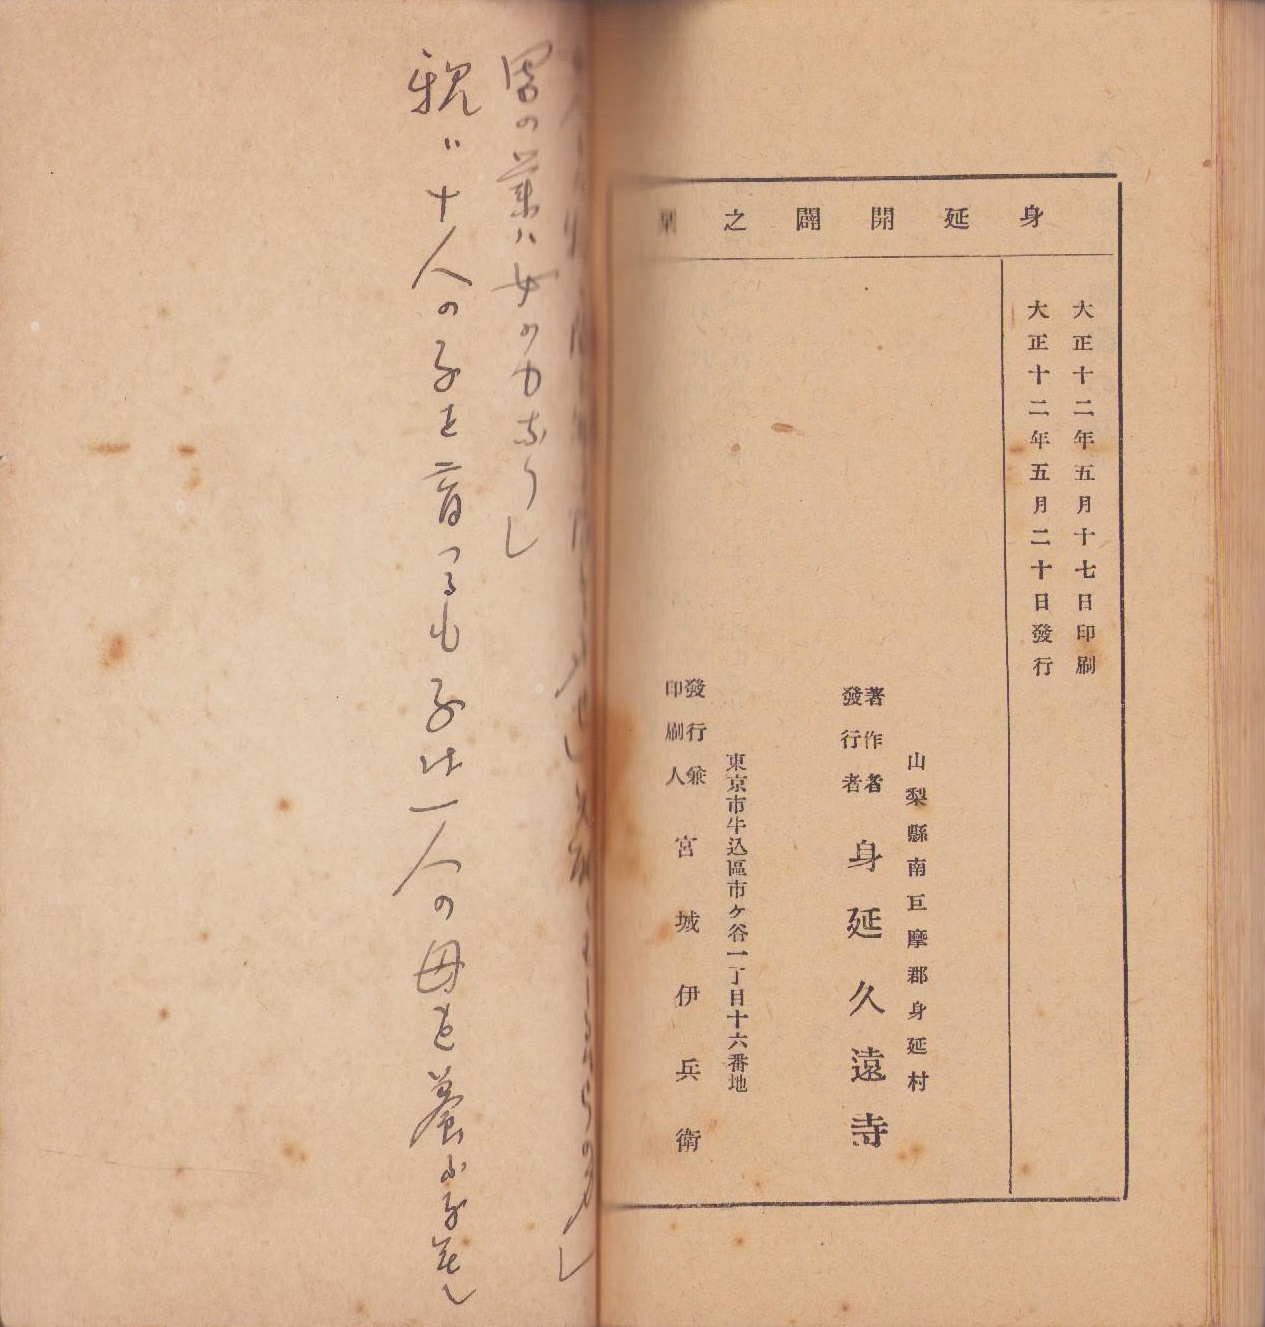 身延開闢之
大正十二年五月十七日印刷
大正十二年五月二十日發行
山梨縣南巨摩郡身延村
著作者
發行者
身延久遠寺
東京市牛込區市ケ谷一丁目十六番地
發行兼
印刷人
宮城伊兵衛
男の業ハ女の力なりし
親ハ十人の子を育つるも子は一人の母を養ふ なし